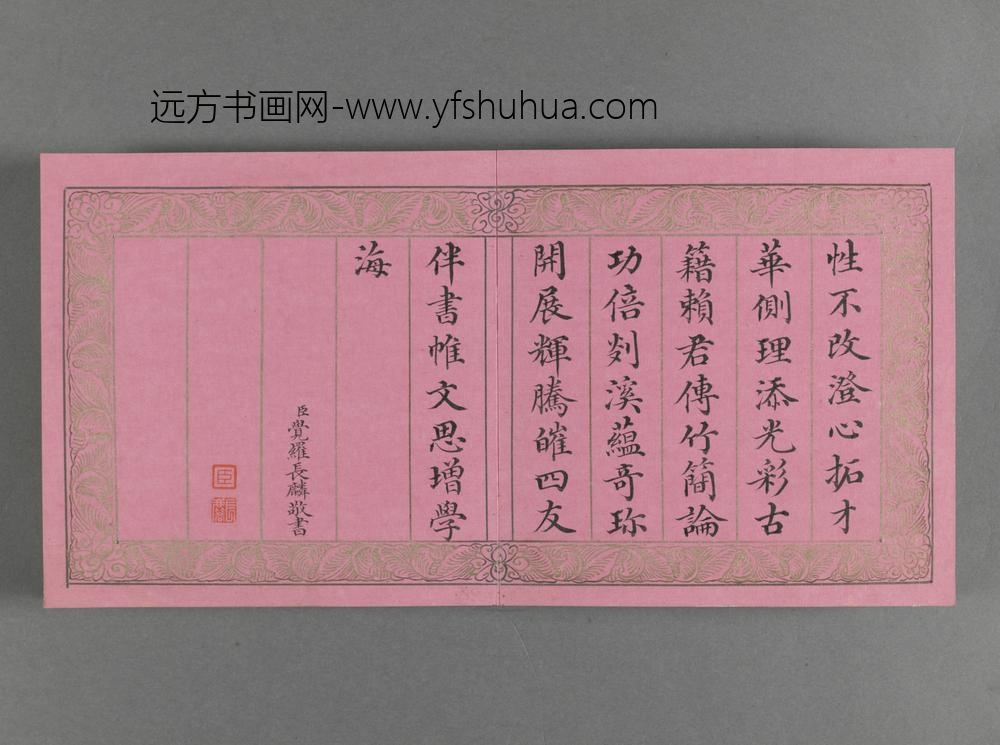 远方书画网-www.yfshuhua.com
性不改澄心拓才
華側理添光彩古
籍賴君傳竹簡論
功倍剡溪蘊奇珎
開展輝騰皠四友
伴書帷文思增學
海
臣覺羅長麟敬書
臣
長麟